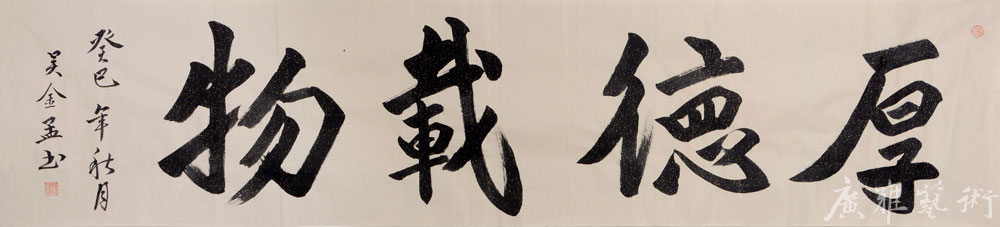 厚德載物
癸巳年秋月
吴金孟书
廣雅藝術